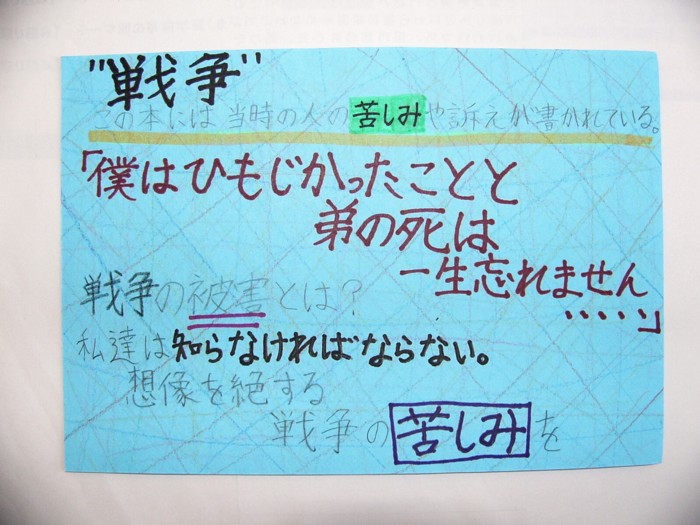 "戦争"
この本には当時の人の苦しみや訴えが書かれている。
「僕はひもじかったことと
弟の死は
一生忘れません
・・・・・」
戦争の被害とは?
私達は知らなければならない。
想像を絶する
戦争の苦しみを